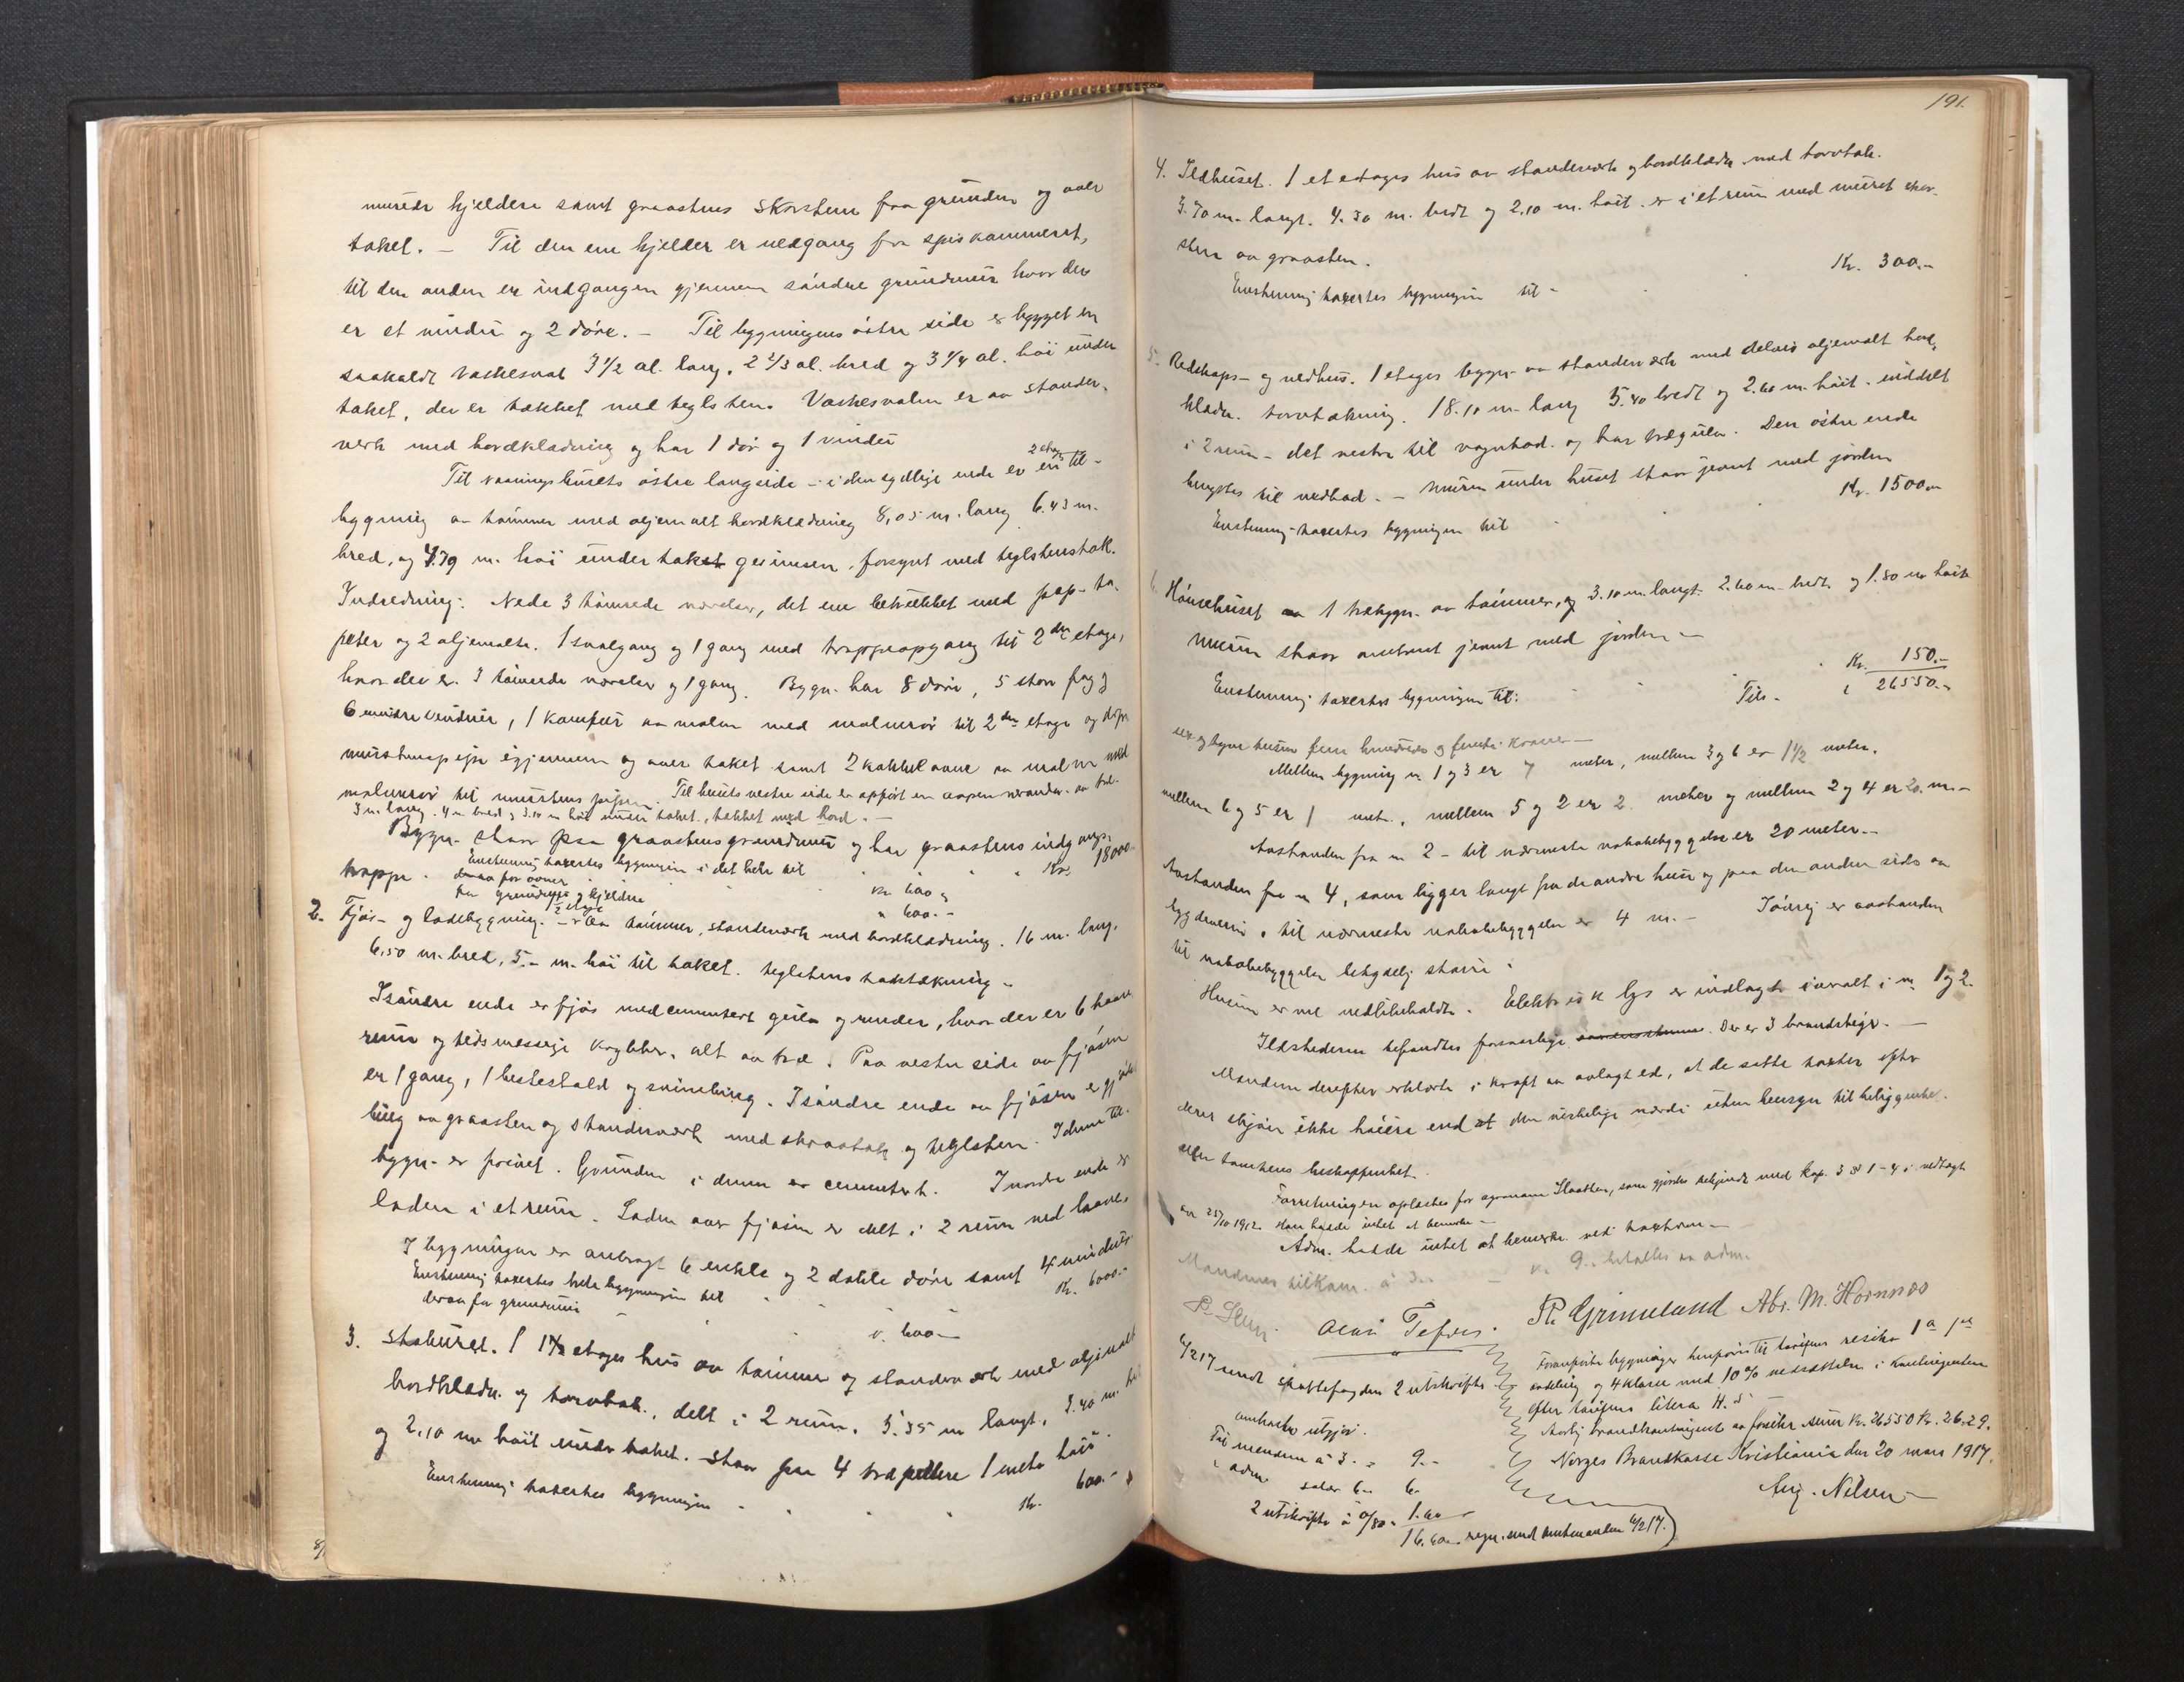 murede kjeldere samt graastens skorsten fra grunden og over
taket. — Til den ene kjelder er nedgang fra spiskammeret,
til den anden er indgangen gjennem søndre grundmur hvor der
er et vindu og 2 døre. — Til bygningens østre side er bygget en
saakaldt vaskesval 3 1/2 al. lang, 2 2/3 al. bred og 3 1/4 al. høi under
taket, der er tækket med teglsten. Vaskesvalen er av stander-
verk med bordklædning og har 1 dør og 1 vindu
Til vaaningshusets østre langside – i den sydlige ende er en 2 etag. til-
bygning av tømmer med oljemalt bordklædning 8,05 m. lang 6.43 m.
bred, og 4.79 m. høi under taket gesimsen, forsynt med teglstenstak.
Indredning: Nede 3 tømrede værelser, det ene betrukket med pap- ta-
peter og 2 oljemalte. 1 svalgang og 1 gang med trappeopgang til 2den etage,
hvor der er 3 tømrede værelser og 1 gang. Bygn. har 8 døre, 5 store fag og
6 mindre vinduer, 1 komfur av malm med malmrør til 2den etage og
murstenspipe igjennem og over taket samt 2 kakkelovne av malm med
malmrør til murstens pipen. Til husets vestre side er opført en aapen veranda av træ.
3 m. lang. 4 m. bred og 3.10 m høi under taket, tækket med bord. —
Bygn. staar paa graastensgrundmur og har graastens indgangs-
trappe. Enstemmig taxertes bygningen i det hele til Kr. 18000.-
derav for ovner kr. 600.-
for grundmur og kjeldere " 600.-
2. Fjøs- og ladebygning. – 1 1/2 etage – Av tømmer, standerværk med bordklædning. 16 m. lang.
6,50 m. bred, 5.- m. høi til taket. teglstens taktækning –
I søndre ende er fjøs med cementert gulv og render, hvor der er 6 baase
rum og tidsmessige krybber, alt av træ. Paa vestre side av fjøsen
er 1 gang, 1 hestestald og svinebing. I søndre ende av fjøsen er
av graasten og standerværk med skraatak og teglsten. I denne til-
bygn. er privet. Grunden i denne er cementert. I nordre ende er
laden i et rum. Laden over fjøsen er delt i 2 rum med laave.
I bygningen er anbragt 6 enkle og 2 doble døre samt 4 vinduer.
Enstemmig taxertes hele bygningen til Kr. 6000.-
derav for grundmur kr. 600.-
3. Stabburet. 1 1 1/2 etages hus av tømmer og standerværk med oljemalt
bordklædn. og torvtak, delt i 2 rum. 5.35 m langt, 3.40 m.
og 2,10 m høit under taket. Staar paa 4 træpillere 1 meter høie.
Enstemmig taxertes bygningen Kr. 600.-
191.
4. Ildhuset. 1 et etages hus av standerværk og bordklædn. med torvtak.
3.70 m. langt. 4.30 m. bredt og 2,10 m. høit. er i et rum med muret skor-
sten av graasten.
Enstemmig taxertes bygningen til - Kr. 300.-
5. Redskaps- og vedhus. 1 etages bygn. av standerværk med delvis oljemalt bord-
klædn. torvtækning. 18.10 m. lang 5.40 bredt og 2.60 m. høit. inddelt
i 2 rum – det vestre til vognbod. og har trægulv. Den østre ende
benyttes til vedbod. – Muren under huset staar jevnt med jorden
Enstemmig taxertes bygningen til Kr. 1500.-
6. Hønsehuset 1 træbygn. av tømmer, og 3.10 m. langt. 2.60 m. bredt. og 1.80 m høit
Muren staar omtrent jevnt med jorden –
Enstemmig taxertes bygningen til: Kr. 150.-
Tils. - " 26550.-
sex og tyve tusen fem hundrede og femti kroner –
Mellem bygning nr. 1 og 3 er 7 meter, mellem 3 og 6 er 1 1/2 meter.
mellem 6 og 5 er 1 met., mellem 5 og 2 er 2 meter og mellem 2 og 4 er 20. m.–
Avstanden fra nr 2 – til nærmeste nabobebyggelse er 20 meter.–
Avstanden fra nr 4, som ligger langt fra de andre huse og paa den anden side av
bygdeveien, til nærmeste nabobebyggelse er 4 m. – Iøvrig er avstanden
til nabobebyggelse betydelig større.
Husene er vel vedlikeholdte. Elektrisk lys er indlagt overalt i nr. 1 og 2.
Ildstederne befandtes forsvarlige. Der er 3 brandstiger. —
Mændene derefter erklærte i kraft av avlagt ed, at de satte taxten efter
deres skjøn ikke høiere end at den virkelige værdi uten hensyn til beliggenhet
eller tomtens beskaffenhet.
Forretningen oplæstes for agronom Slaatten, som gjordes bekjendt med kap. 3 §§ 1–4 i vedtægt
av 25/10 1912. Han hadde intet at bemerke –
Adm. hadde intet at bemerke ved taxten. –
Mændenes tilkom. á 3.. – kr. 9.. betaltes av adm.
Olai Tefre. Pt. Grimelund Abr. M. Hornnes
6/2 17 sendt skattefogden 2 utskrifter
omkostn. utgjør.
Til mændene á 3. = 9.-
" adm. salær 6.- 6.-
2 utskrifter á 0/80 = 1.60
16.60 regn. sendt 6/2 17.)
Foranførte bygninger henføres til tariffens risiko 1a 1ste
avdeling og 4 klasse med 10% nedsættelse i kontingenten
efter tariffens litera H. 5
Aarlig brandkontingent av forsikr. sum Kr. 26550 Kr. 26.29.
Norges Brandkasse Kristiania den 20 mars 1917.
Aug. Nilsen